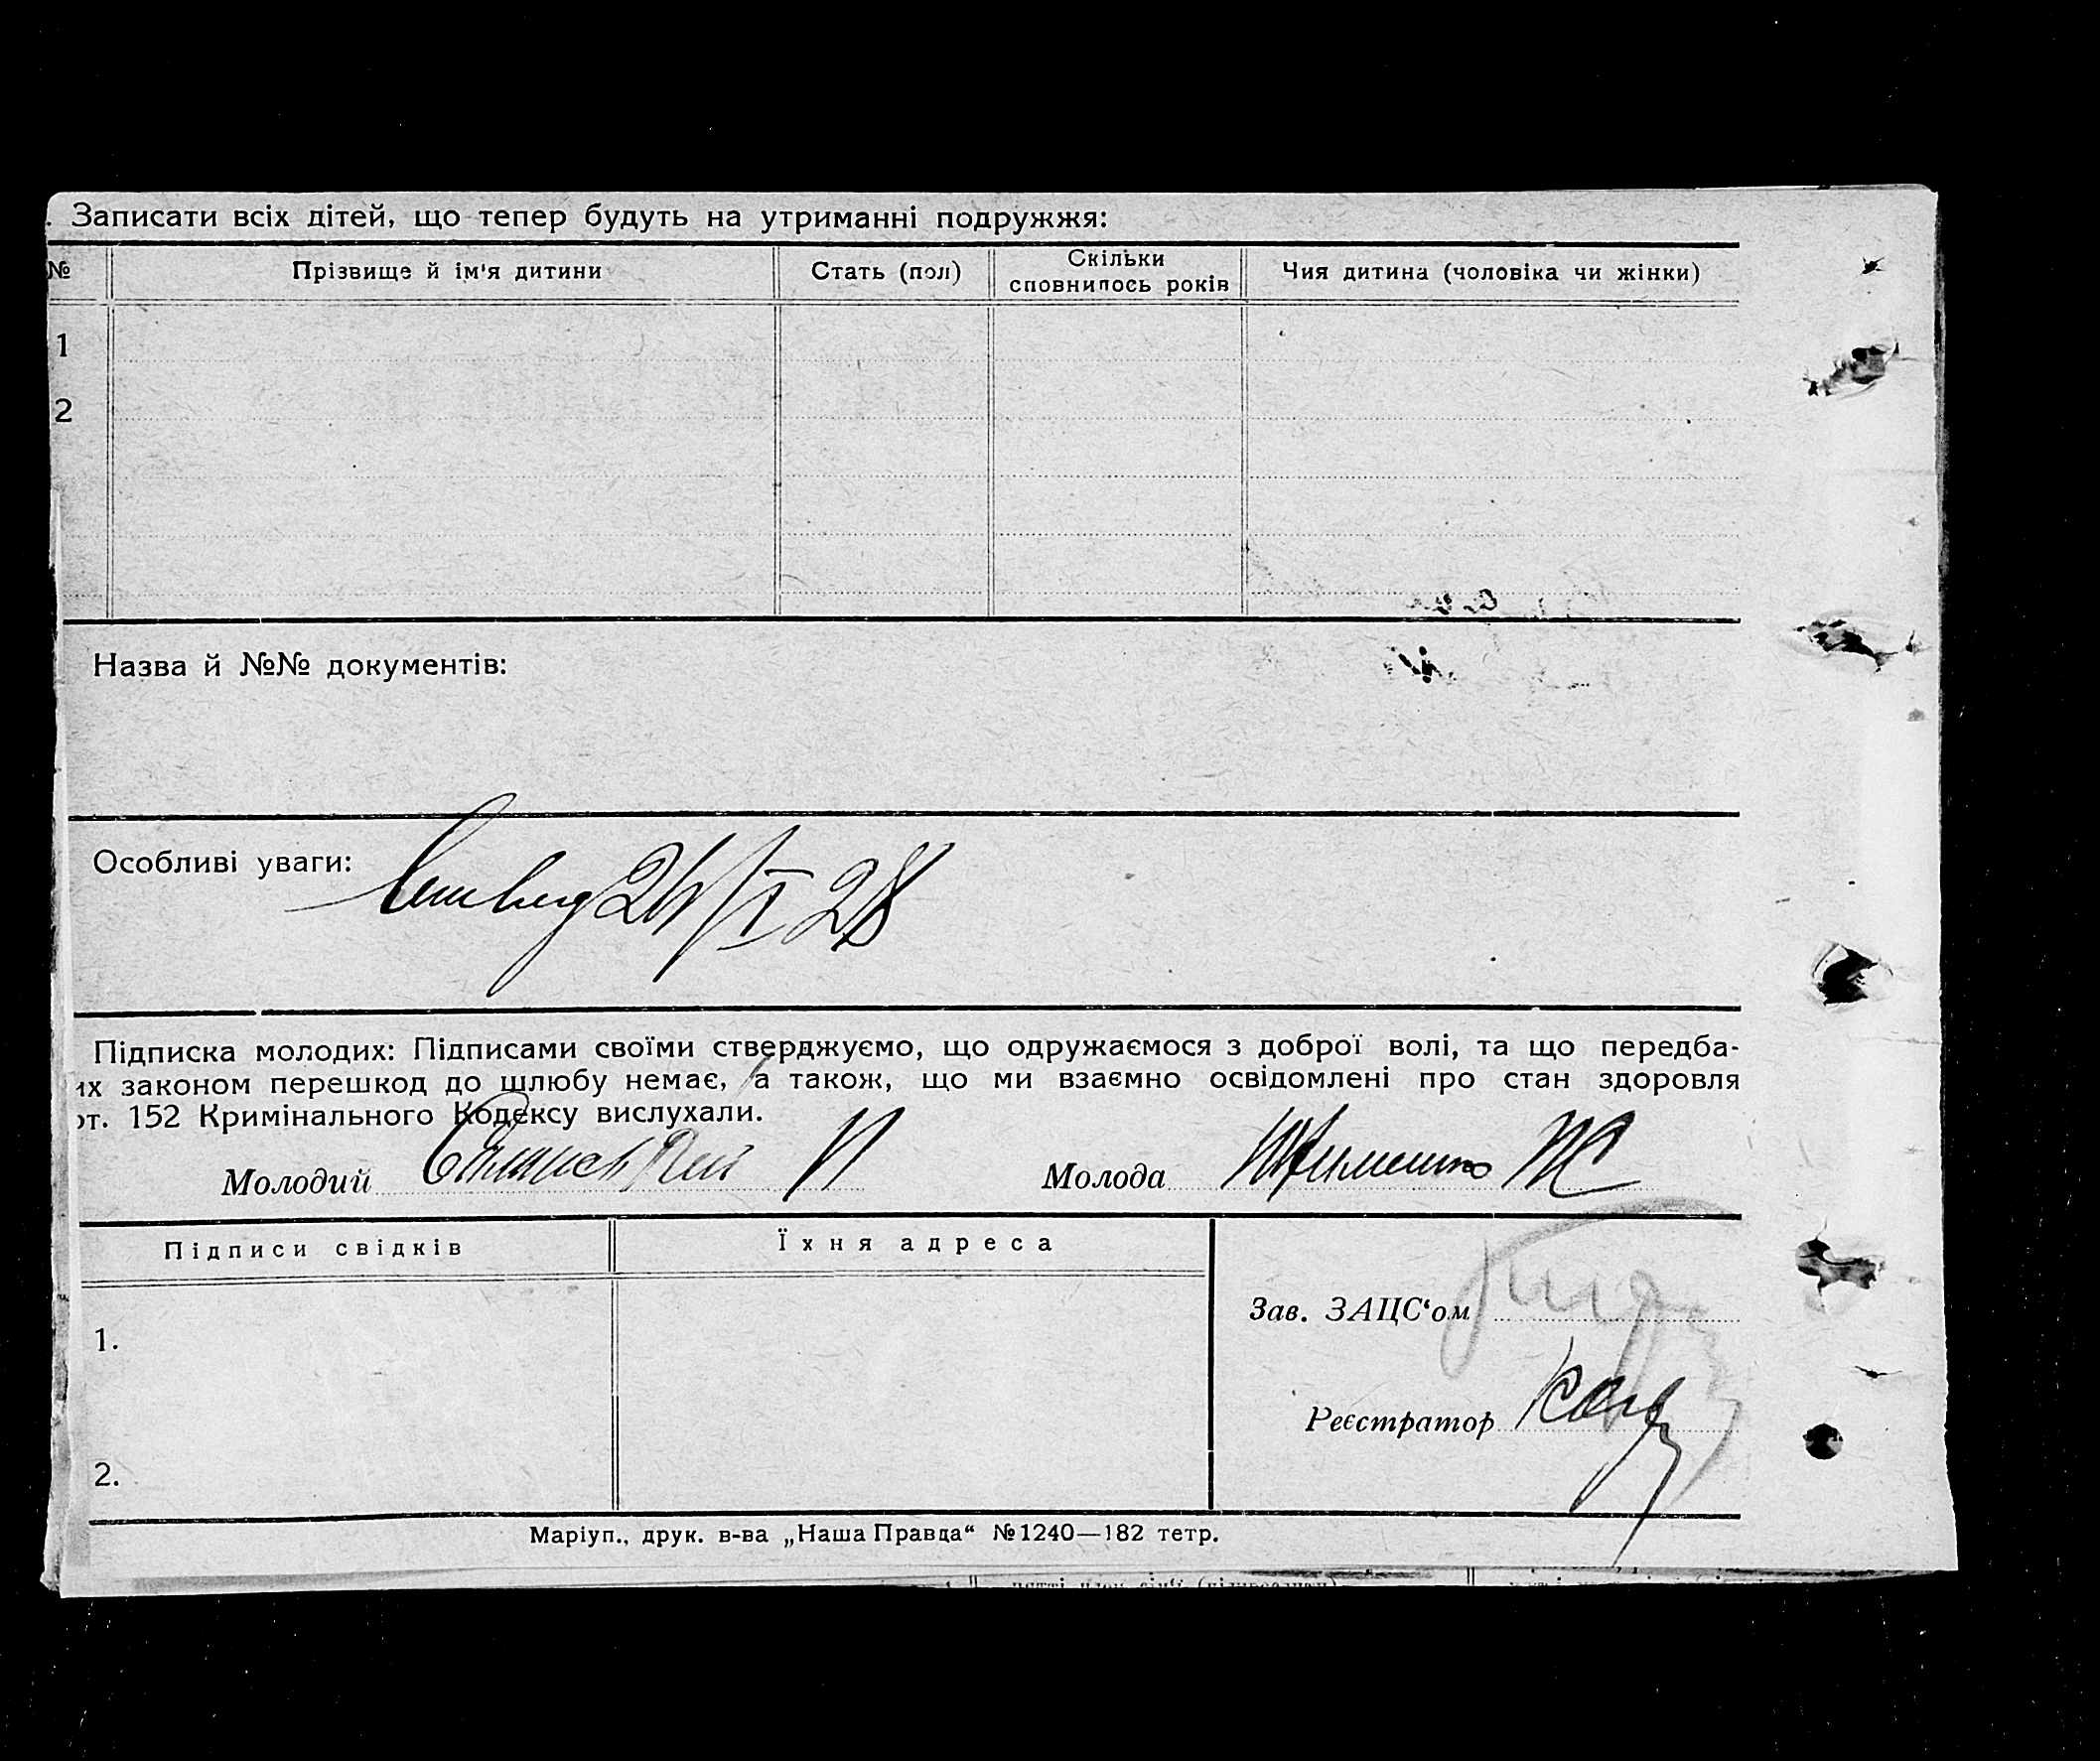 . Записати всіх дітей, що тепер будуть на утриманні подружжя:
№ Прізвище й ім'я дитини Стать (пол) Скільки сповнилось років Чия дитина (чоловіка чи жінки)
1
2
Назва й №№ документів:
Особливі уваги: 28
Підписка молодих: Підписами своїми стверджуємо, що одружаємося з доброї волі, та що передба-
их законом перешкод до шлюбу немає, а також, що ми взаємно освідомлені про стан здоровля
рт. 152 Кримінального Кодексу вислухали.
Молодий Молода
Підписи свідків Їхня адреса
Зав. ЗАЦС‘ом
1.
Реєстратор
2.
Маріуп., друк. в-ва „Наша Правда“ № 1240—182 тетр.